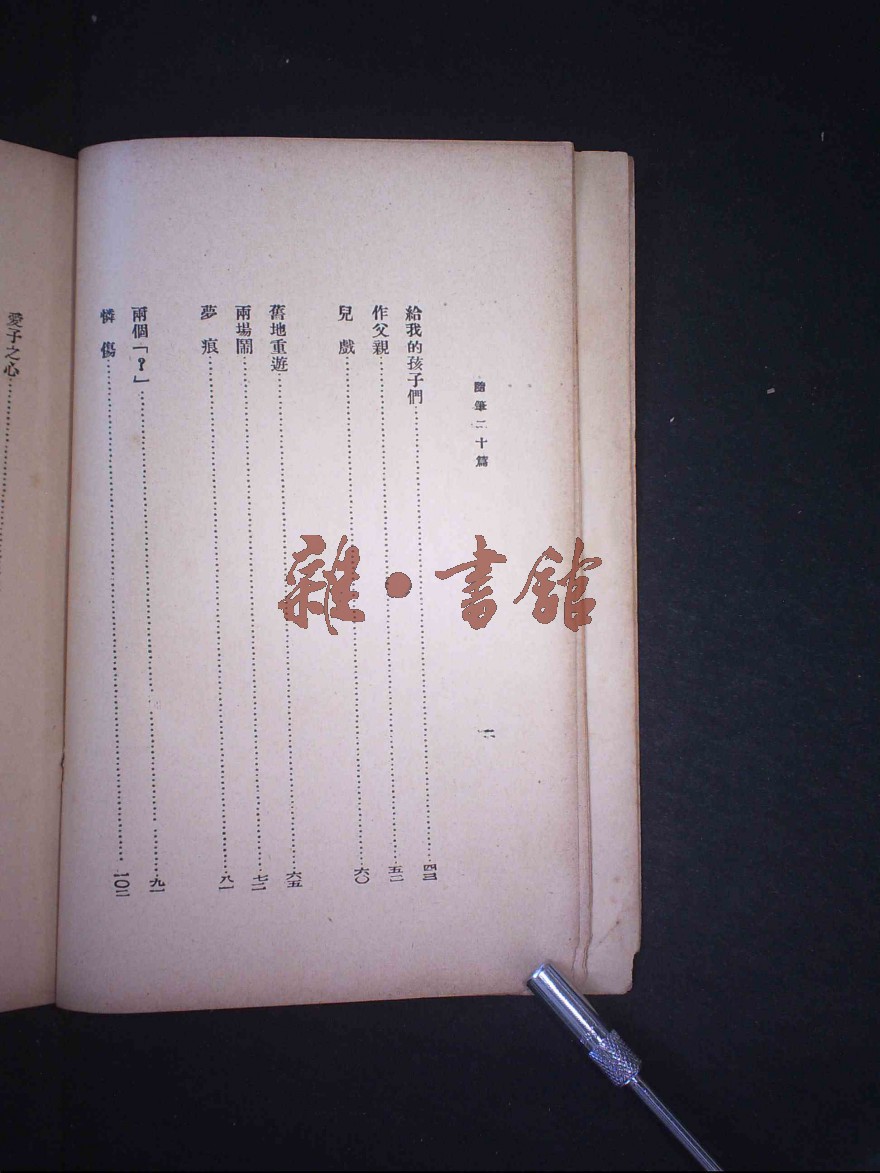 隨筆二十篇
二
給我的孩子們……四三
作父親……五二
兒戲……六〇
舊地重遊……六五
兩場鬧……七二
夢痕……八一
兩個「？」……九一
憐傷……一〇二
愛子之心……
雜·書館